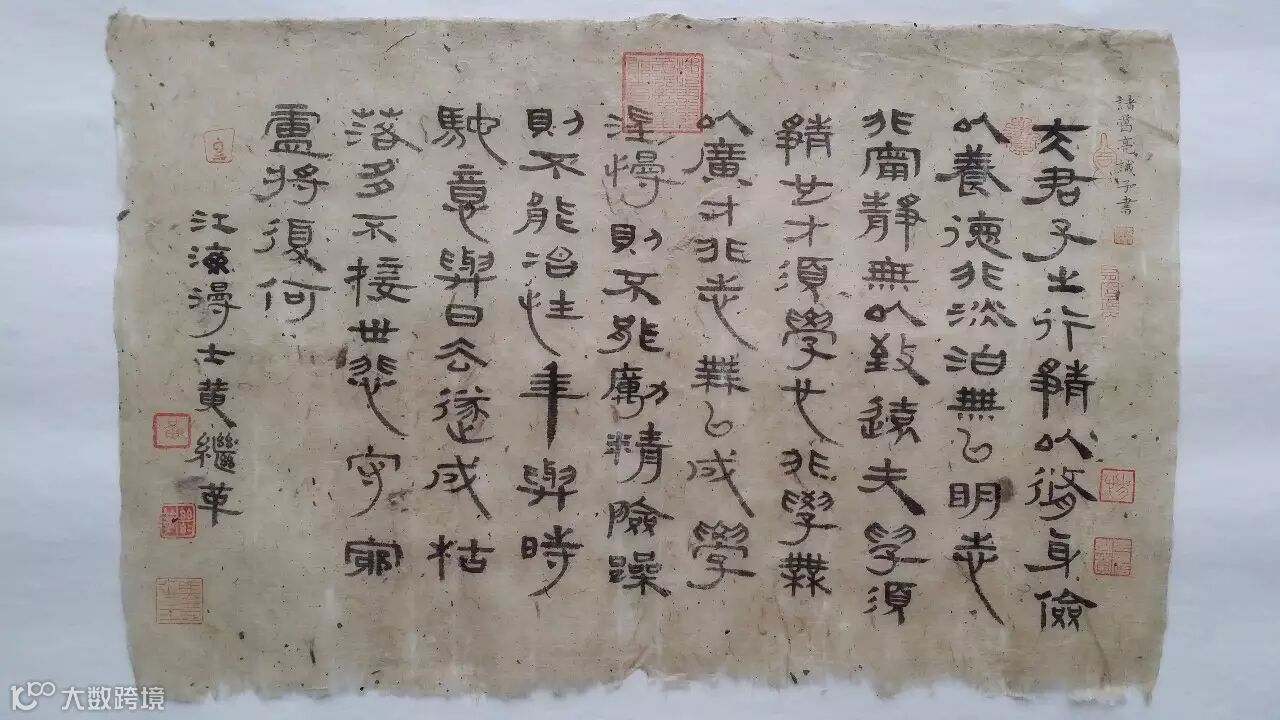 諸葛亮誡子書
夫君子之行靜以脩身儉
以養德非淡泊無以明志
非甯靜無以致遠夫學須
靜也才須學也非學無
以廣才非志無以成學
淫慢則不能勵精險躁
則不能治性年與時
馳意與日去遂成枯
落多不接世悲守窮
盧將復何
江海漫士黄繼革
大数跨境